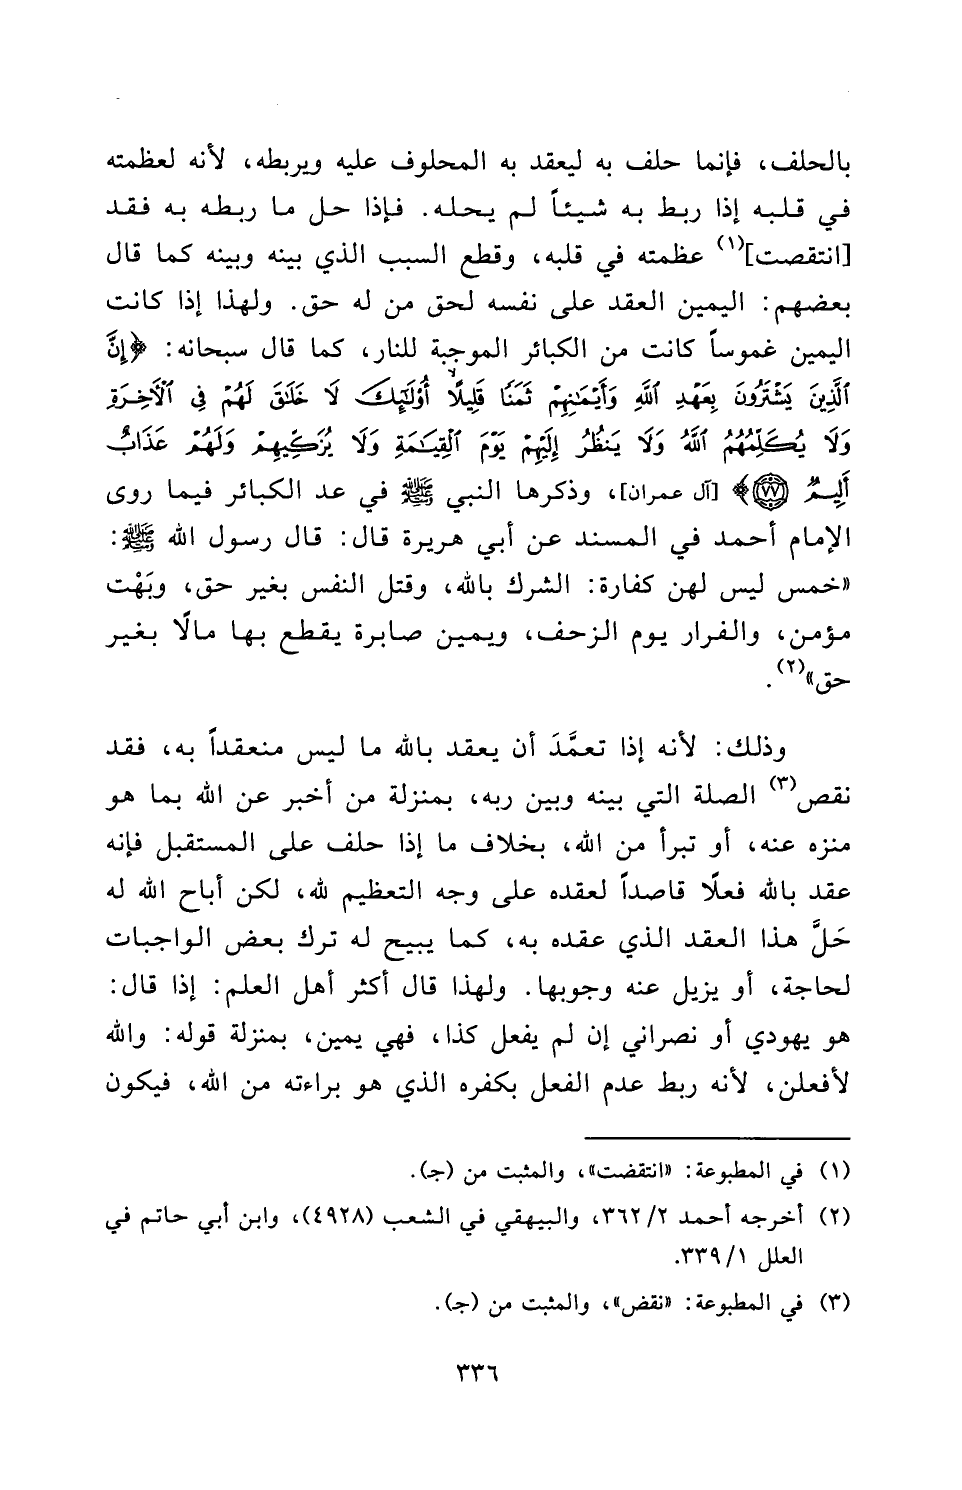 بالحلف، فإنما حلف به ليعقد به المحلوف عليه ويربطه، لأنه لعظمته
في قلبه إذا ربط به شيئاً لم يحله. فإذا حل ما ربطه به فقد
[انتقصت](١) عظمته في قلبه، وقطع السبب الذي بينه وبينه كما قال
بعضهم: اليمين العقد على نفسه لحق من له حق. ولهذا إذا كانت
اليمين غموساً كانت من الكبائر الموجبة للنار، كما قال سبحانه: ﴿إِنَّ
ٱلَّذِينَ يَشْتَرُونَ بِعَهْدِ ٱللَّهِ وَأَيْمَٰنِهِمْ ثَمَنًا قَلِيلًا أُو۟لَٰٓئِكَ لَا خَلَٰقَ لَهُمْ فِى ٱلْأٓخِرَةِ
وَلَا يُكَلِّمُهُمُ ٱللَّهُ وَلَا يَنظُرُ إِلَيْهِمْ يَوْمَ ٱلْقِيَٰمَةِ وَلَا يُزَكِّيهِمْ وَلَهُمْ عَذَابٌ
أَلِيمٌ ٧٧﴾ [آل عمران]، وذكرها النبي ﷺ في عد الكبائر فيما روى
الإمام أحمد في المسند عن أبي هريرة قال: قال رسول الله ﷺ:
«خمس ليس لهن كفارة: الشرك بالله، وقتل النفس بغير حق، وبَهْت
مؤمن، والفرار يوم الزحف، ويمين صابرة يقطع بها مالًا بغير
حق»(٢).
وذلك: لأنه إذا تعمَّدَ أن يعقد بالله ما ليس منعقداً به، فقد
نقص(٣) الصلة التي بينه وبين ربه، بمنزلة من أخبر عن الله بما هو
منزه عنه، أو تبرأ من الله، بخلاف ما إذا حلف على المستقبل فإنه
عقد بالله فعلًا قاصداً لعقده على وجه التعظيم لله، لكن أباح الله له
حَلَّ هذا العقد الذي عقده به، كما يبيح له ترك بعض الواجبات
لحاجة، أو يزيل عنه وجوبها. ولهذا قال أكثر أهل العلم: إذا قال:
هو يهودي أو نصراني إن لم يفعل كذا، فهي يمين، بمنزلة قوله: والله
لأفعلن، لأنه ربط عدم الفعل بكفره الذي هو براءته من الله، فيكون
(١) في المطبوعة: «انتقضت»، والمثبت من (جـ).
(٢) أخرجه أحمد ٢/ ٣٦٢، والبيهقي في الشعب (٤٩٢٨)، وابن أبي حاتم في
العلل ١/ ٣٣٩.
(٣) في المطبوعة: «نقض»، والمثبت من (جـ).
٣٣٦